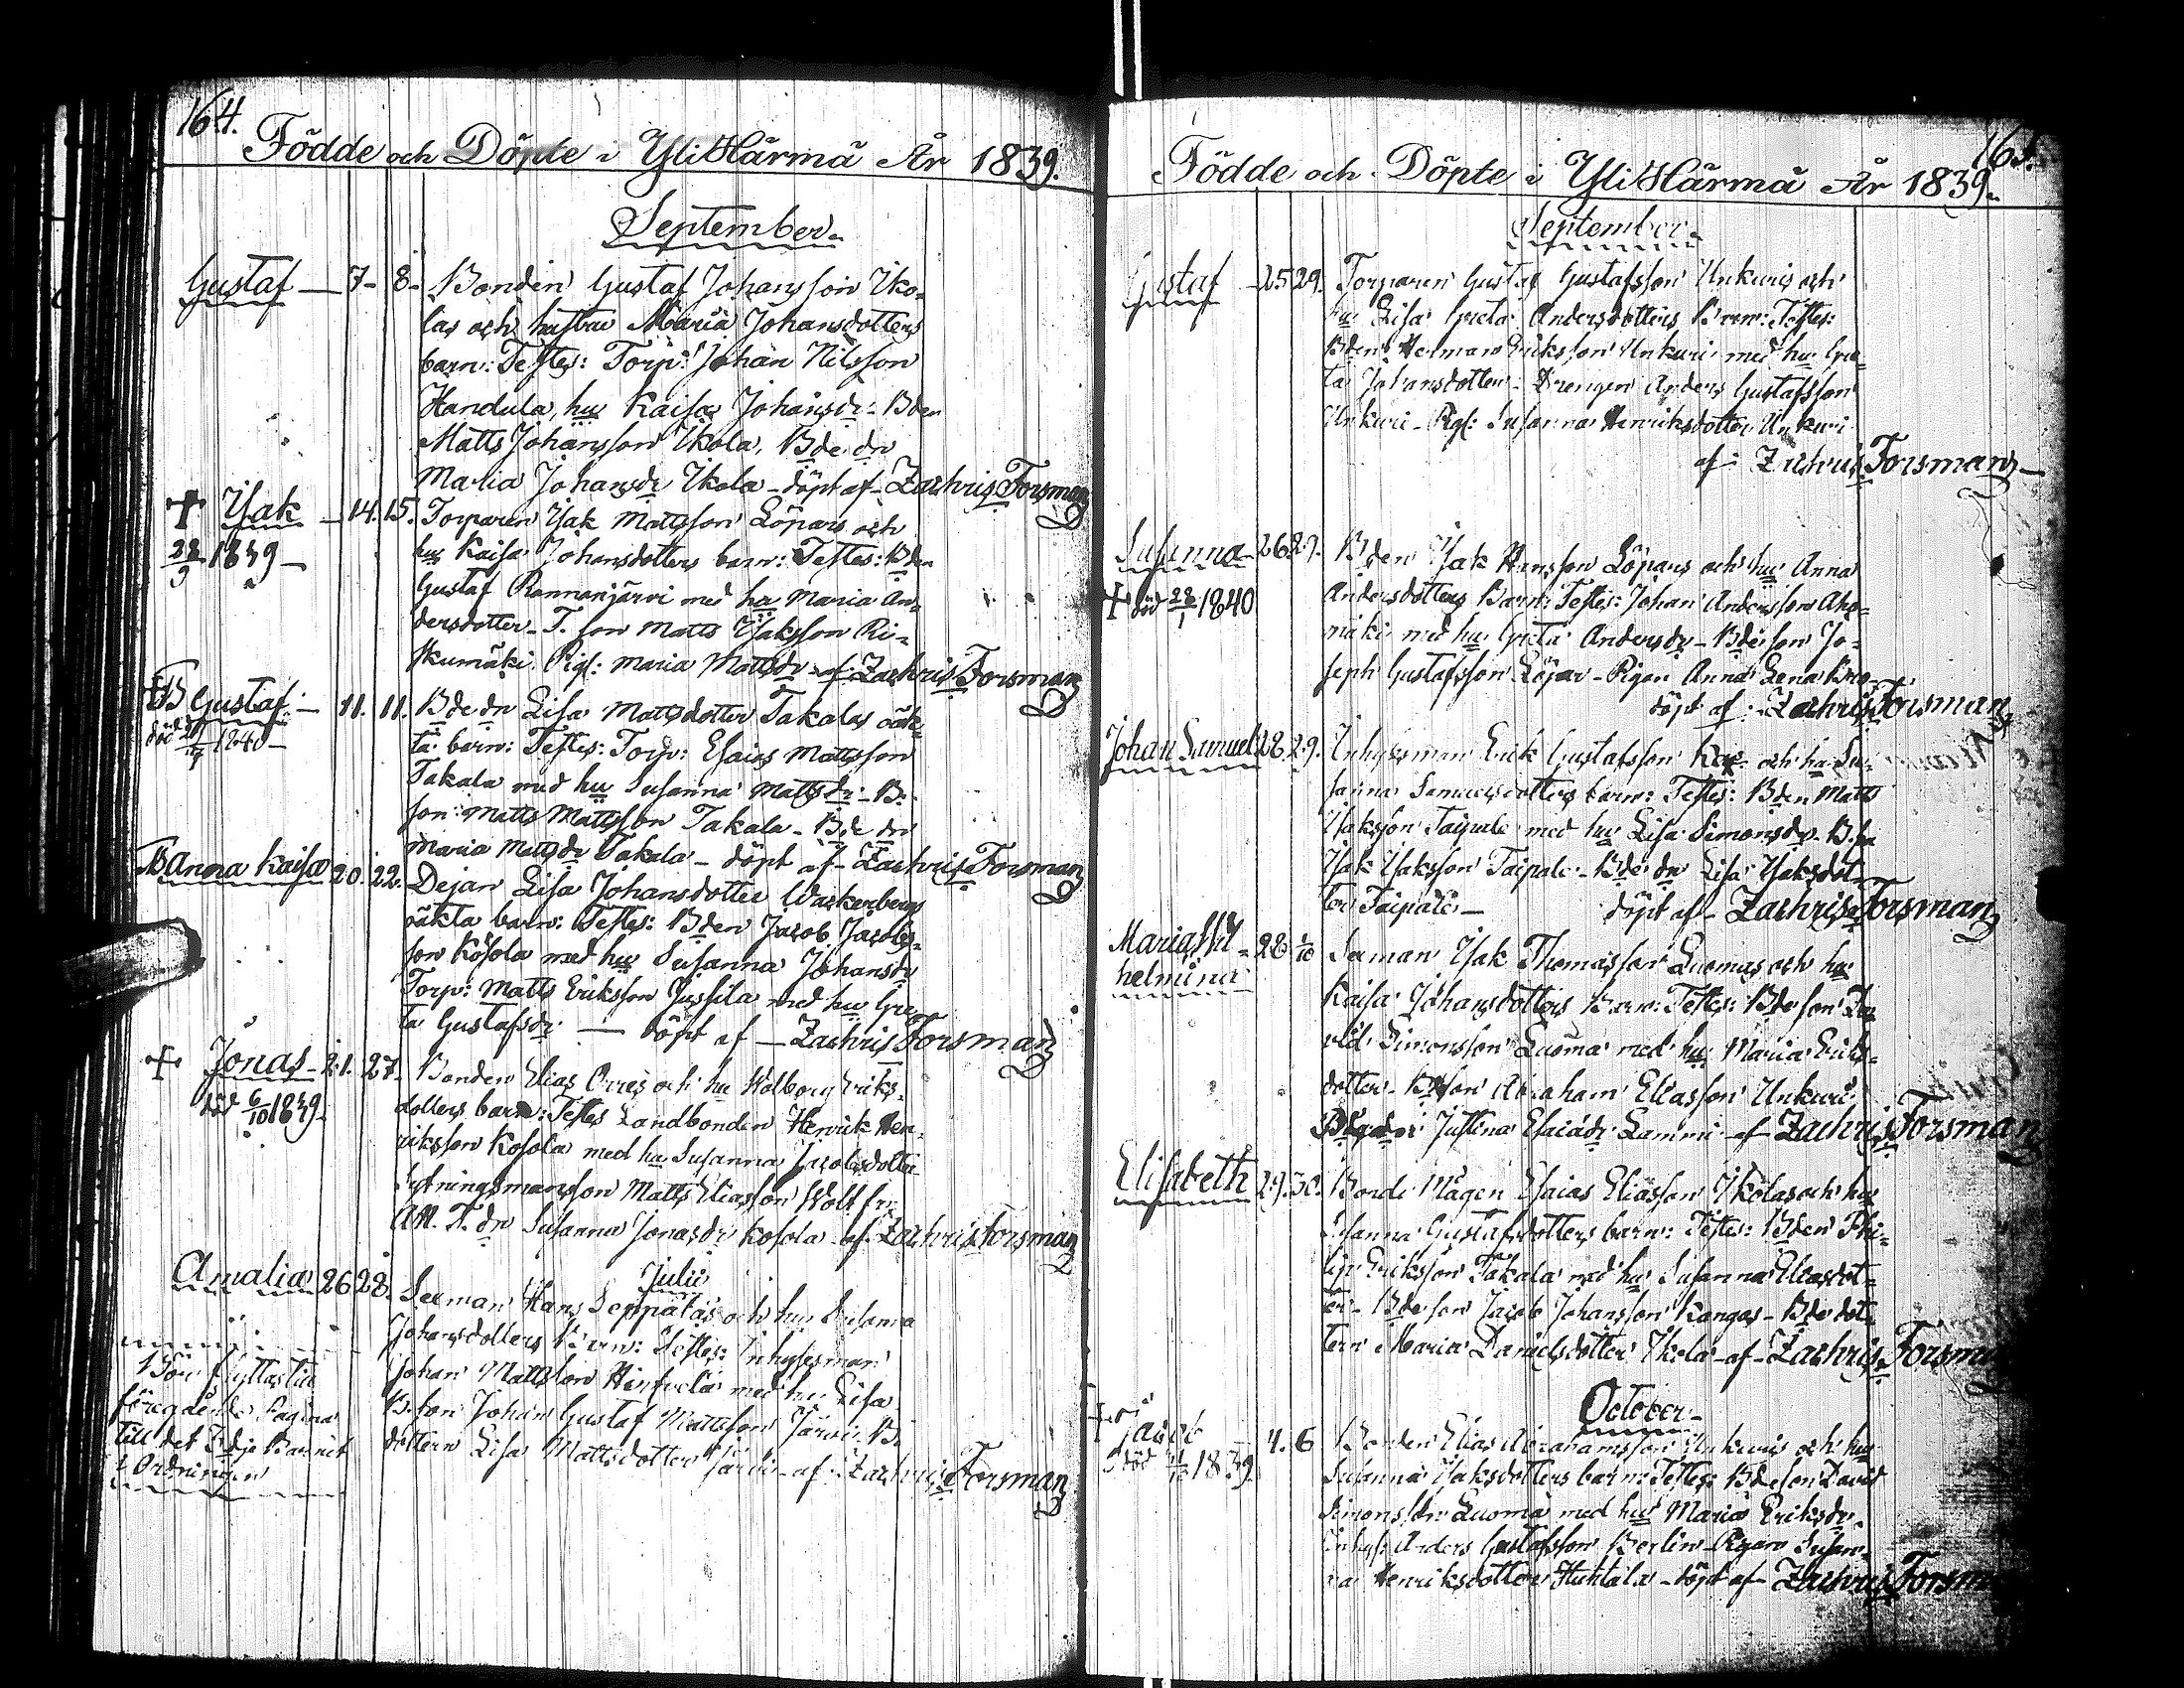 164.
Födde och Döpte i YliHärmä År 1839.
September
Gustaf — 7 - 8 - Bonden Gustaf Johansson Iko-
las och hustru Maria Johansdotters
barn: Testes: Torp: Johan Nilsson
Handula, hu Kaisa Johansdr - Bden
Matts Johansson Ikola, Bde dr
Maria Johansdr Ikola - döpt af - Zachris Forsman
+ Isak - 14. 15. Torparen Isak Mattsson Löpars och
28/9 1839 - hus Kaisa Johansdotters barn: Testes: Bden
Gustaf Rannanjärvi med hu Maria An-
dersdotter - T. son Matts Isaksson Ri-
skumäki. Pig: Maria Mattsdr - af - Zachris Forsman
+ B Gustaf - 11. 11. Bde dr Lisa Mattsdotter Takalas oäk-
död 1840 - ta barn: Testes: Torp: Esaias Mattsson
Takala med hu Susanna Mattsdr - B.
son: Matts Mattsson Takala - Bde dr
Maria Mattsdr Takala - döpt af - Zachris Forsman
B Anna Kaisa 20. 22. Dejan Lisa Johansdotter Waskerbergs
oäkta barn: Testes: Bden Jacob Jacobs-
son Kosola med hu Susanna Johansdr
Torp: Matts Eriksson Jussila med hu Gre-
ta Gustafsdr — döpt af — Zachris Forsman
+ Jonas - 21. 27. Bonden Elias Orres och hu Walborg Eriks-
död 6/10 1839. dotters barn: Testes Landbonden Henrik Hen-
riksson Kosola med hu Susanna Jacobsdotter
Sytningsmansson Matts Eliasson
T. dr Susanna Jonasdr Kosola - af - Zachris Forsman
Julii
Amalia 26 28. Seeman Hans Seppälas och hu Susanna
Johansdotters Barn: Testes: Inhysesman
Johan Mattsson med hu Lisa
B. son Johan Gustaf Mattsson Järvi - B.
dottern Lisa Mattsdotter Järvi - af - Zachris Forsman
Bör flyttas till
föregående Pagina
till det 3dje Barnet
i Ordningen
165.
Födde och Döpte i YliHärmä År 1839.
September
Gustaf - 25 29. Torparen Gustaf Gustafsson Unkuris och
hu Lisa Greta Andersdotters Barn: Testes:
Bden Herman Eriksson Unkuri med hu Gre-
ta Johansdotter - Drengen Anders Gustafsson
Unkuri - Pig: Susanna Henriksdotter Unkuri
af - Zachris Forsman
Susanna - 26. 29. Bden Isak Hansson Löpars och hu Anna
+ död 28/1 1840 Andersdotters Barn: Testes: Johan Andersson Aho-
mäki med hu Greta Andersdr - Bde son Jo-
seph Gustafsson Löpar - Pigan Anna Lena
döpt af - Zachris Forsman
Johan Samuel 28. 29. Inhysesman Erik Gustafsson och hu Su-
sanna Samuelsdotters barn: Testes: Bden Matts
Isaksson Taipale med hu Lisa Simonsdr. B. son
Isak Isaksson Taipale - Bde dr Lisa Isaksdot-
ter Taipale - döpt af - Zachris Forsman
Maria Wil - 28 1/10 Seeman Isak Thomasson Luomas och hu
helmina Kaisa Johansdotters Barn: Testes: Bde son Da-
vid Simonsson Luoma med hu Maria Eriks-
dotter - B. son Abraham Eliasson Unkuri
Justina Esaiædr Lammi - af - Zachris Forsman
Elisabeth 29. 30. Bonde Mågen Esaias Eliasson Ikolas och hu
Susanna Gustafsdotters barn: Testes: Bden Phi-
lip Eriksson Takala med hu Susanna Eliasdot-
ter - Bde son Jacob Johansson Kangas - Bde dot-
tern Maria Danielsdotter Ikola - af - Zachris Forsman
October
+ Jacob 4. 6 Bonden Elias Abrahamsson Unkuris och hu
död 1839. Susanna Isaksdotters barn: Testes: Bde son David
Simonsson Luoma med hu Maria Eriksdr
Inhys: Anders Gustafsson Berlin - Pigan Susan-
na Henriksdotter Huhtala - döpt af - Zachris Forsman